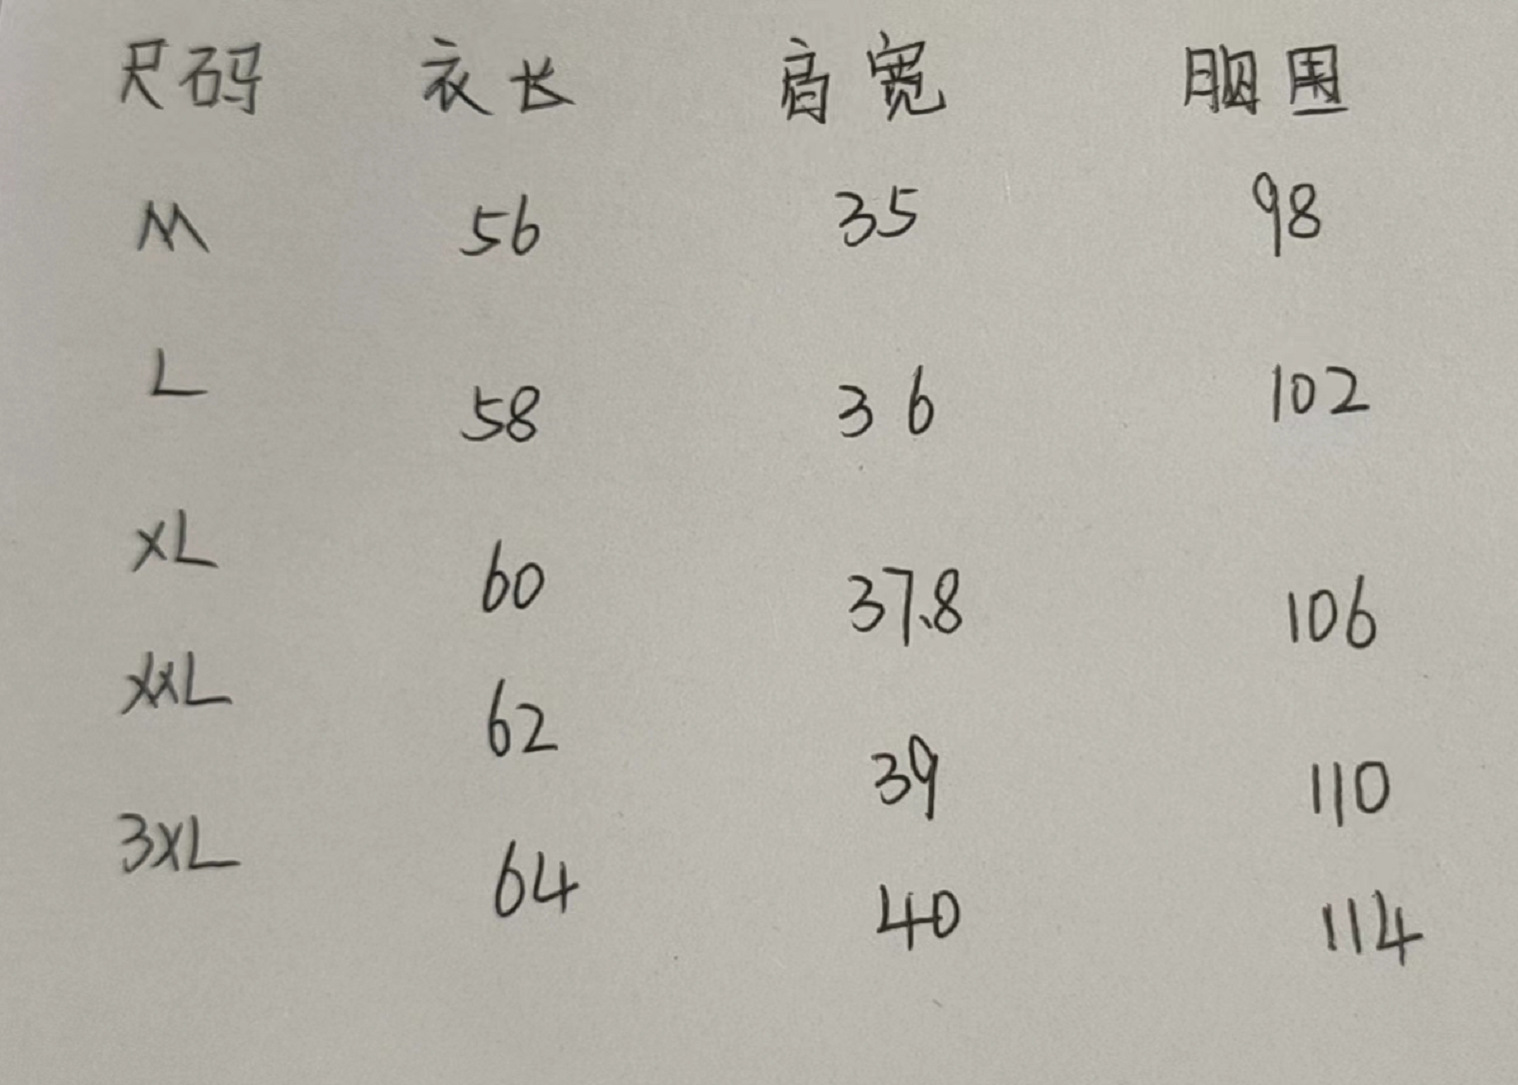 尺码 衣长 肩宽 胸围
M 56 35 98
L 58 36 102
XL 60 37.8 106
XXL 62 39 110
3XL 64 40 114